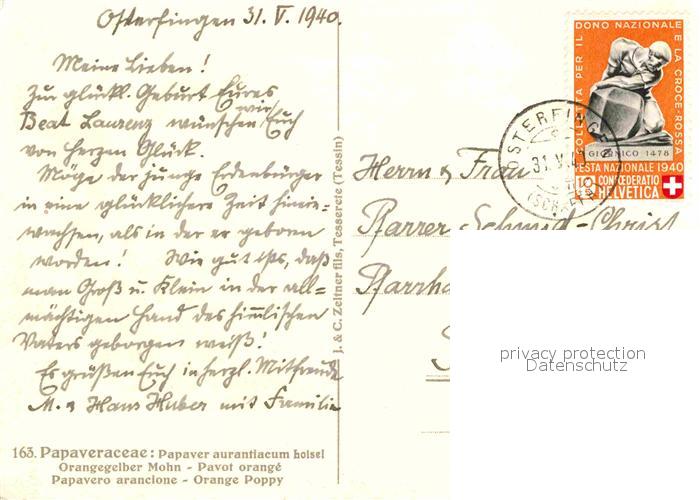 Osterfingen 31. V. 1940.
Meine Lieben!
Zur glückl. Geburt Eures
Beat Laurenz wünschen wir Euch
von Herzen Glück.
Möge der junge Erdenbürger
in eine glücklichere Zeit hinein-
wachsen, als in der er geboren
worden! Wie gut ists, daß
man Groß u. Klein in der all-
mächtigen Hand des himmlischen
Vaters geborgen weiß!
Es grüßen Euch in herzl. Mitfreude
M. u Hans Huber mit Familie
163. Papaveraceae: Papaver aurantiacum loisel
Orangegelber Mohn - Pavot orangé
Papavero arancione - Orange Poppy
J. & C. Zeltner fils, Tesserete (Tessin)
COLLETTA PER IL DONO NAZIONALE E LA CROCE-ROSSA
GIORNICO 1478
FESTA NAZIONALE 1940
10 CONFOEDERATIO
HELVETICA
OSTERFINGEN
31. V. 4
(SCHAFFH
Herrn & Frau
Pfarrer Schmid-Christ
Pfarrha
privacy protection
Datenschutz